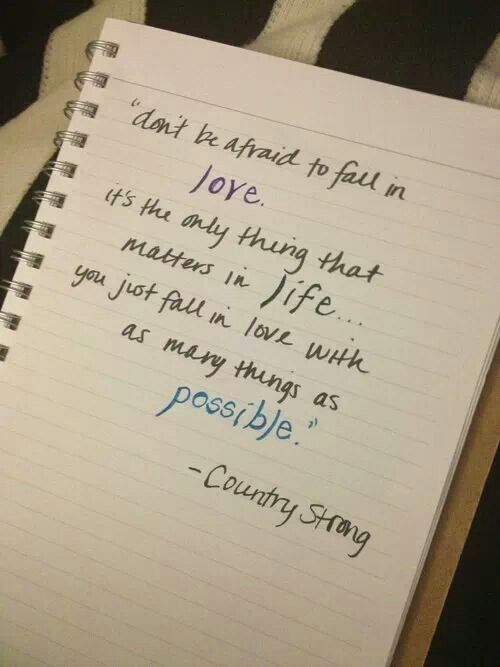 "don't be afraid to fall in
love.
it's the only thing that
matters in life...
you just fall in love with
as many things as
possible."
- Country Strong